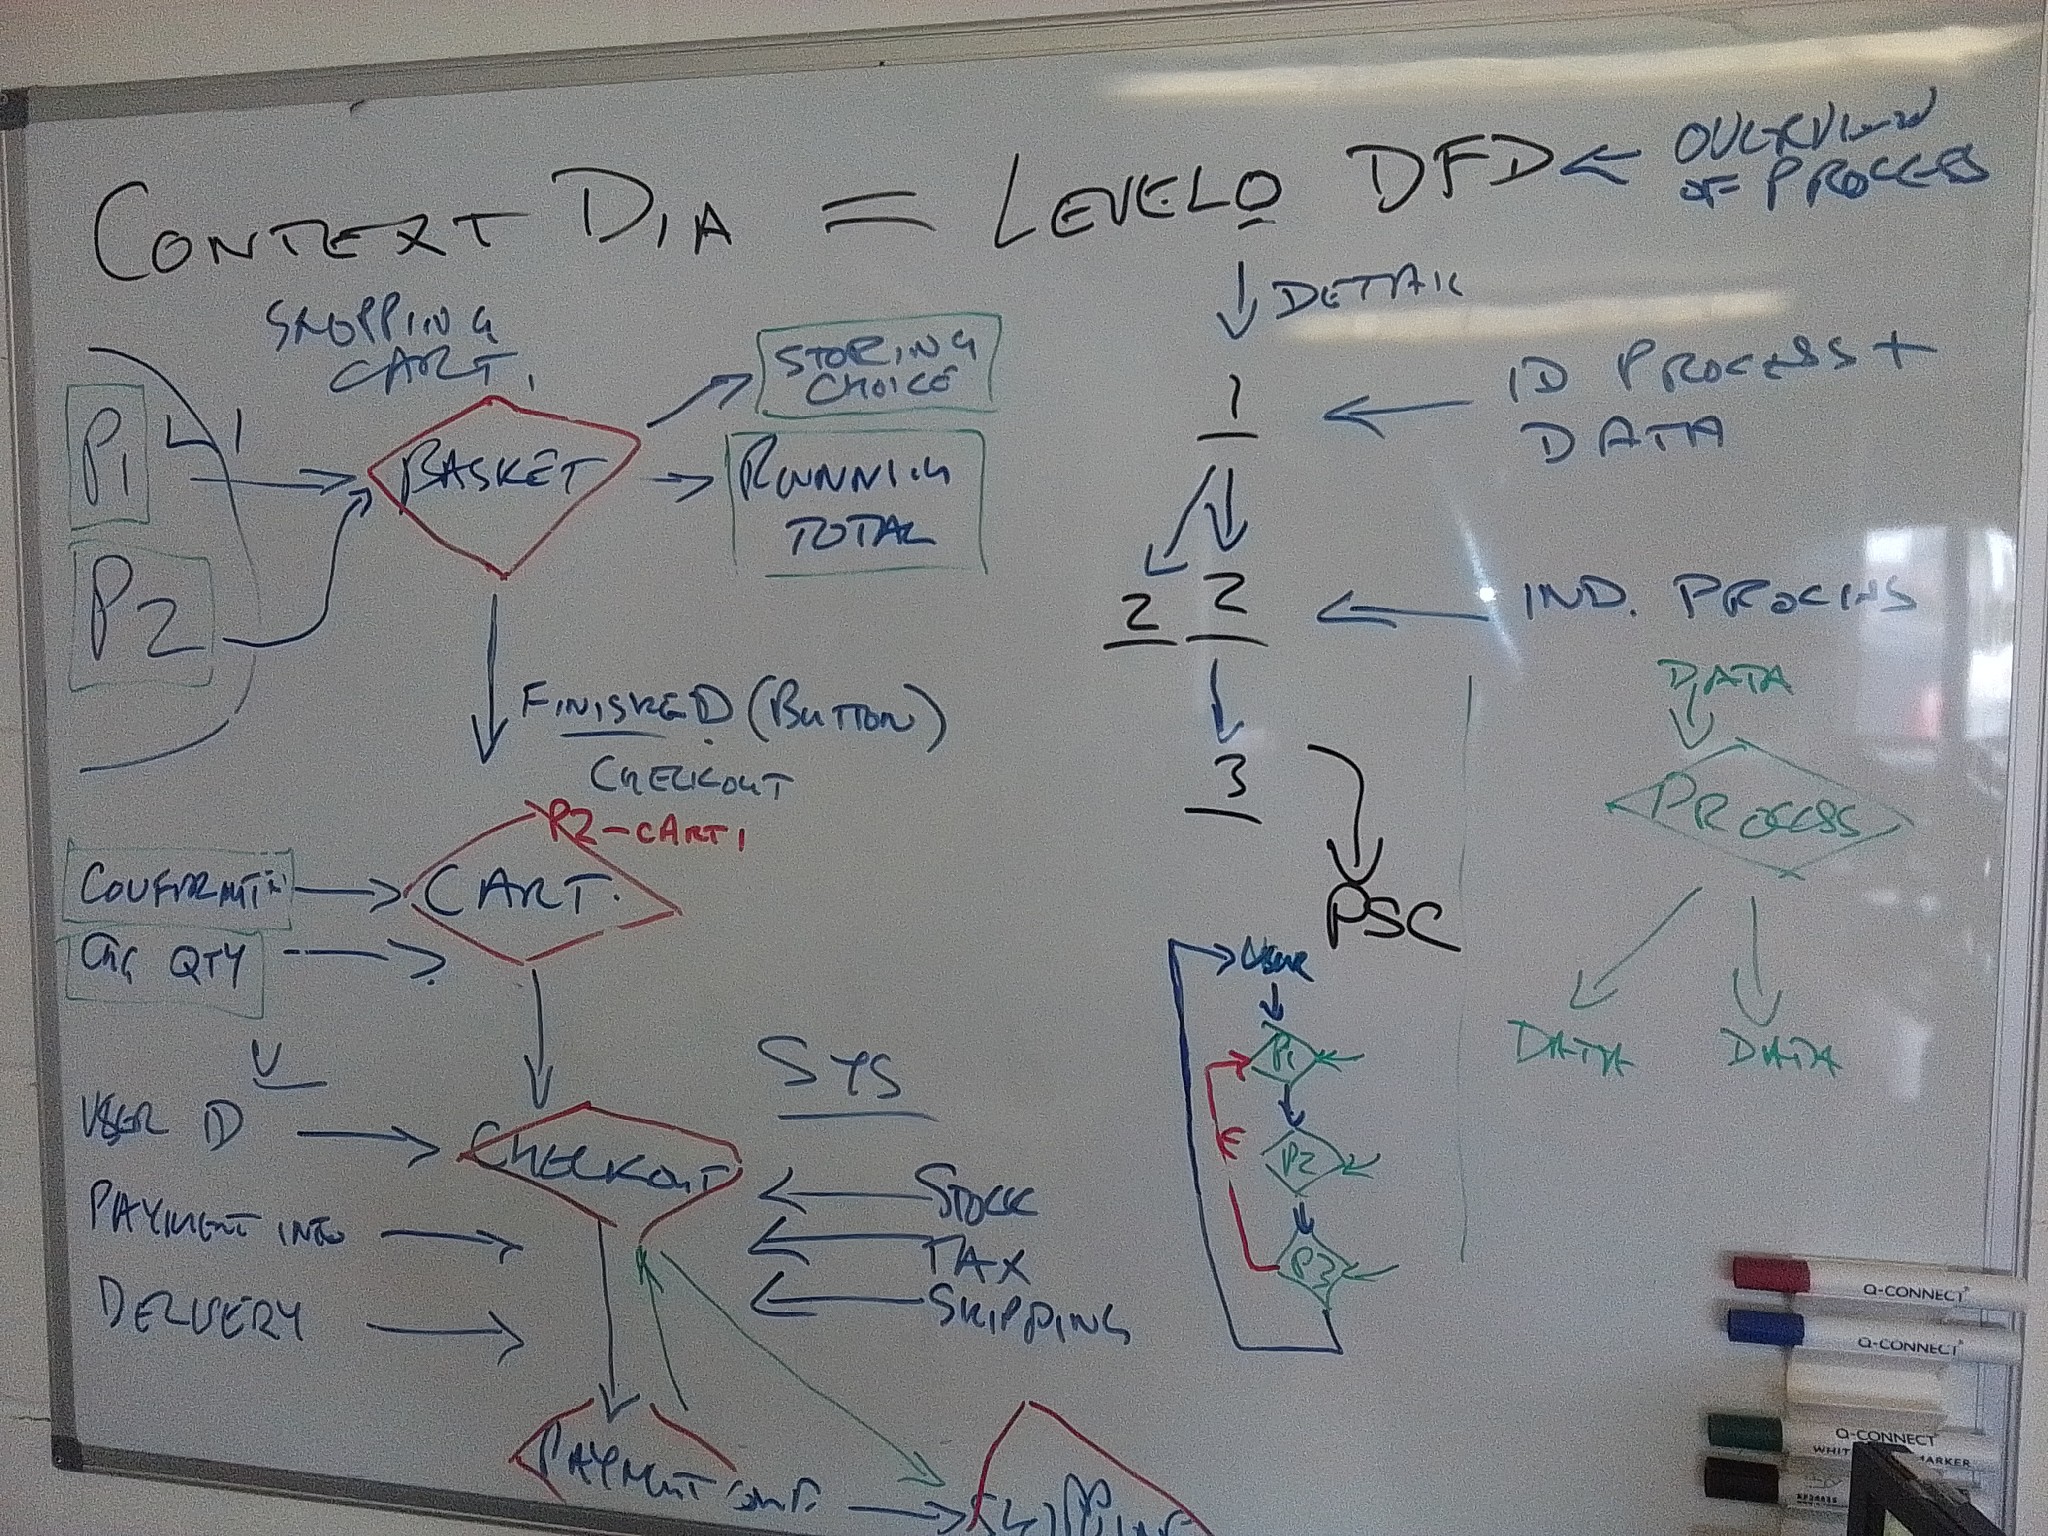 CONTEXT DIA = LEVEL 0 DFD
OVERVIEW
OF PROCESS
DETAIL
SHOPPING
CART.
P1
P2
BASKET
STORING
CHOICE
RUNNING
TOTAL
FINISHED (BUTTON)
CHECKOUT
P2-CART1
CONFIRMT
CART.
CHG QTY
U
USER ID
PAYMENT INFO
DELIVERY
CHECKOUT
SYS
STOCK
TAX
SHIPPING
PAYMENT
SHIPPING
1
ID PROCESS +
DATA
2 2
IND. PROCESS
3
PSC
USER
P1
P2
P3
DATA
PROCESS
DATA DATA
Q-CONNECT
Q-CONNECT
Q-CONNECT